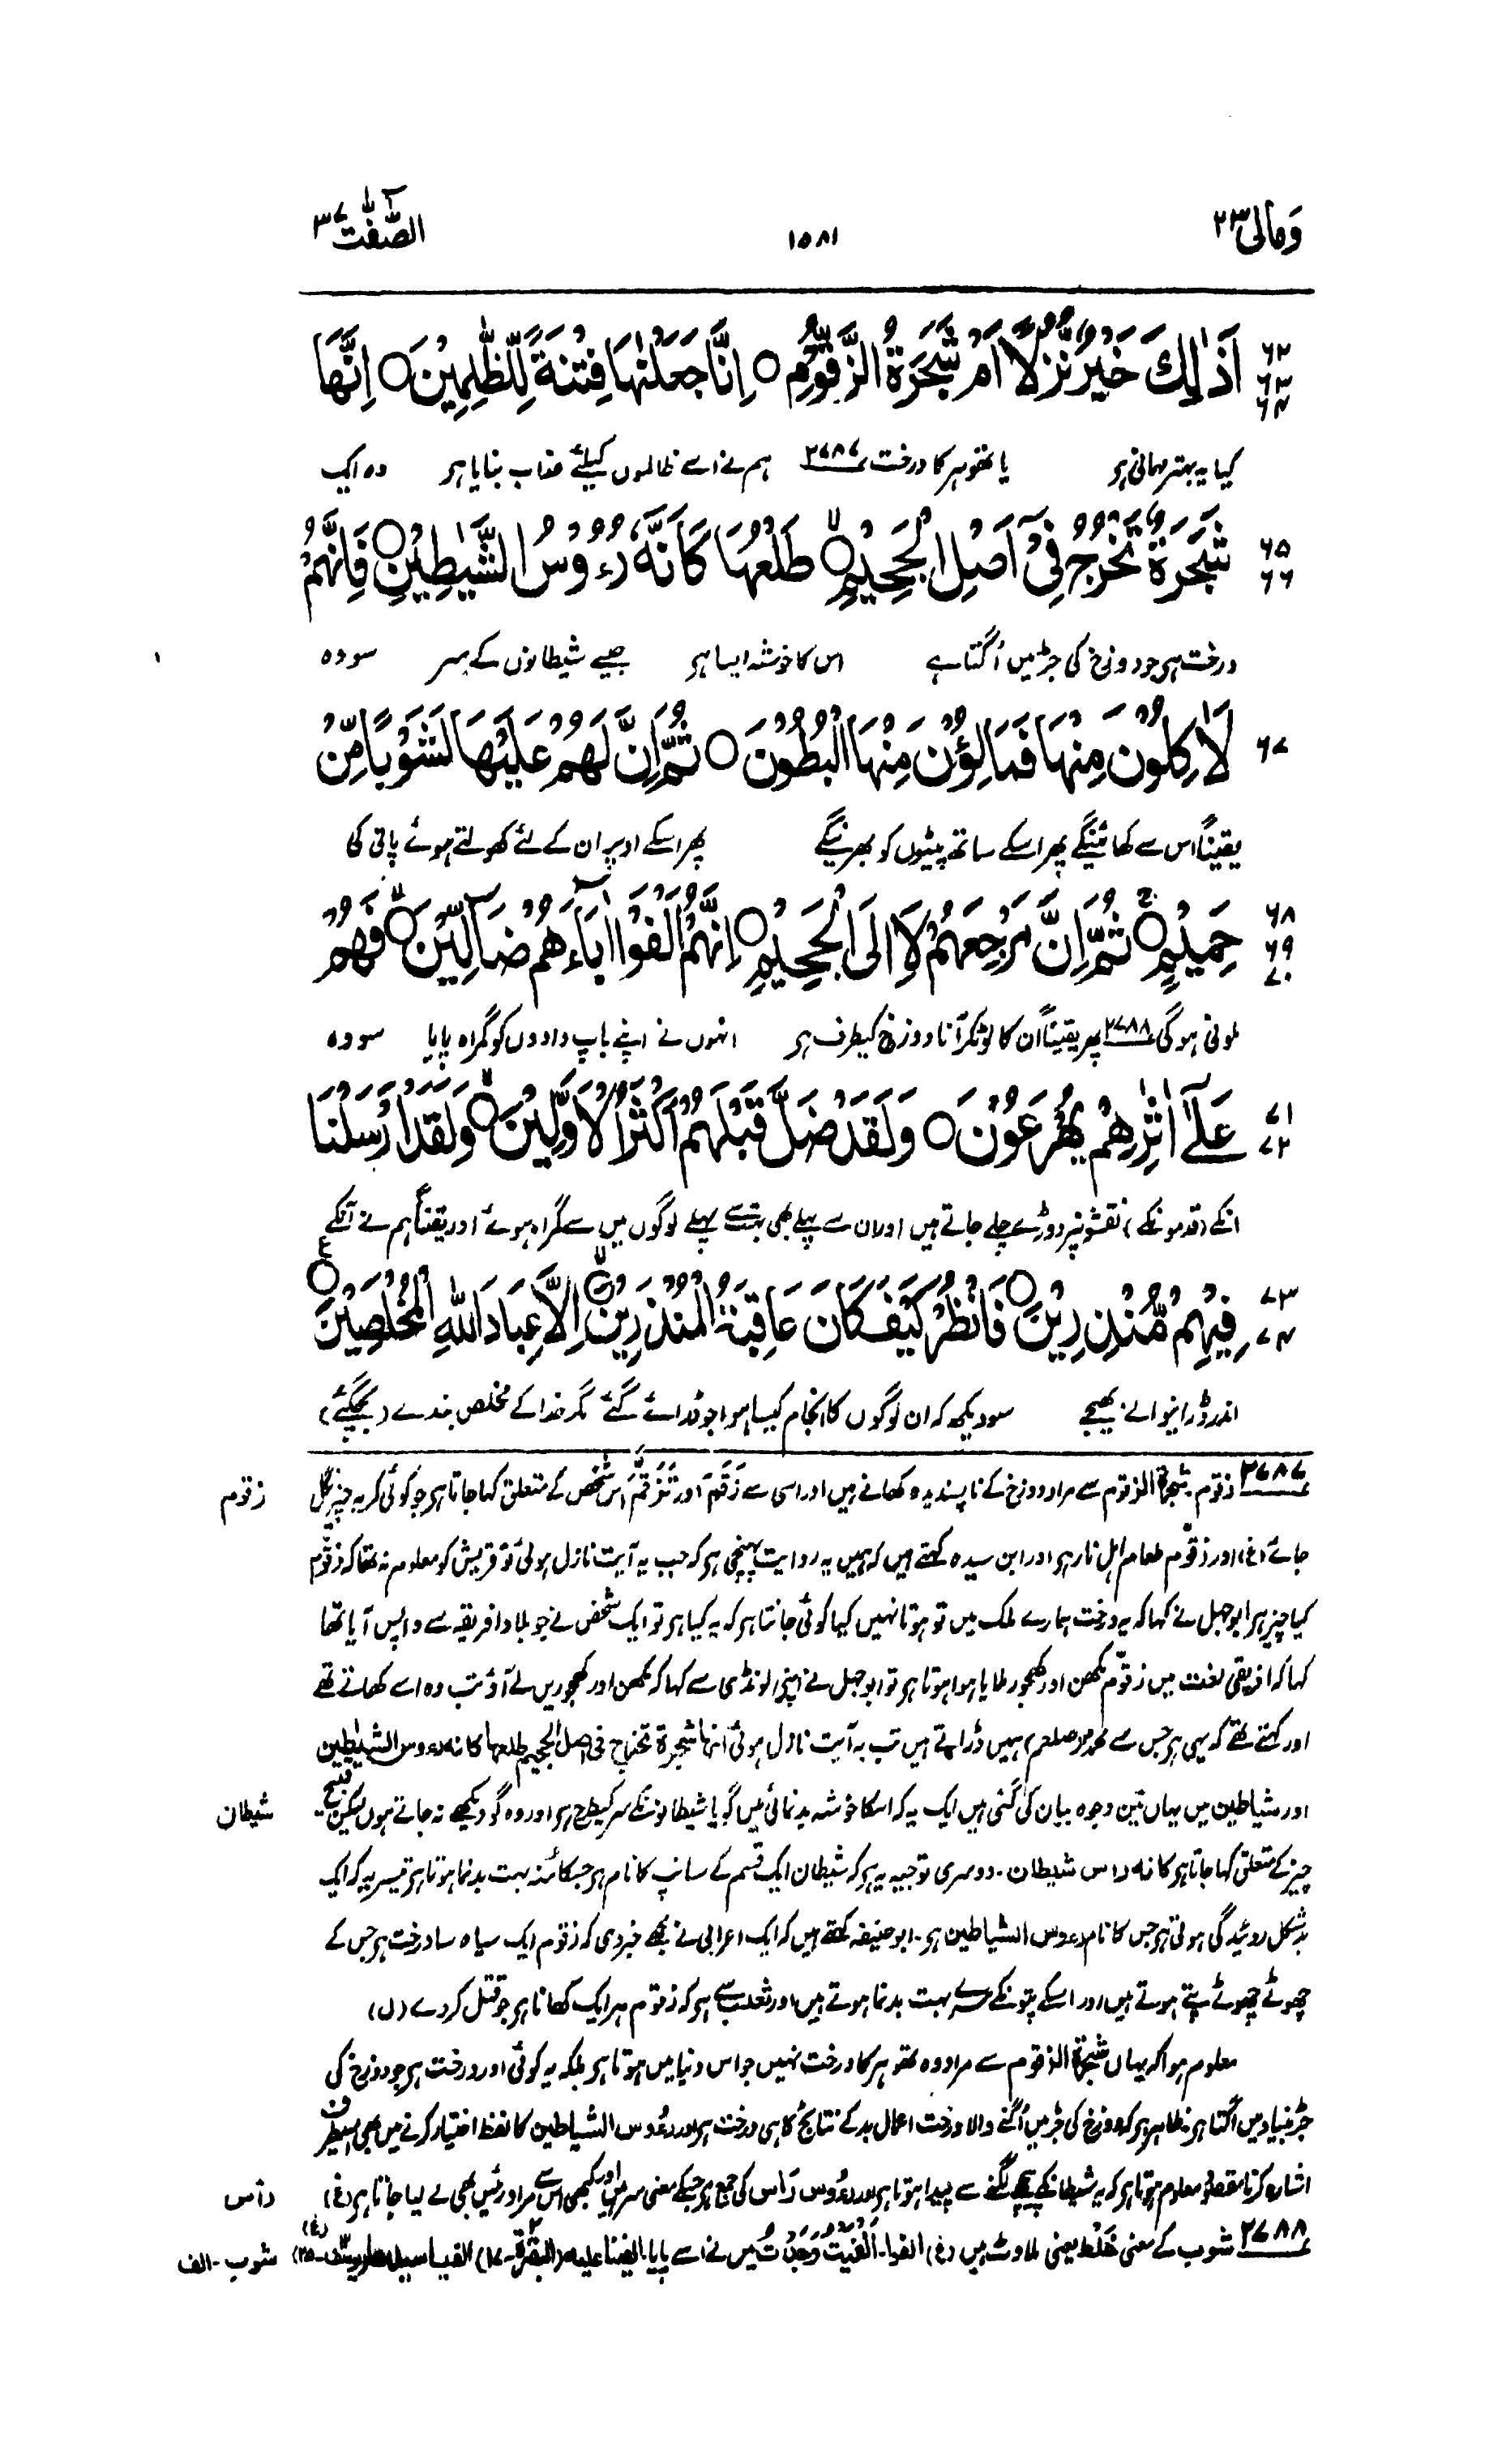 وَمَالِیَ ۲۳
۱۵۸۱
الصّٰٓفّٰت ۳۷
۶۲ ۶۳ ۶۴ اَذٰلِكَ خَيْرٌ نُّزُلًا اَمْ شَجَرَةُ الزَّقُّوْمِ ○ اِنَّا جَعَلْنٰهَا فِتْنَةً لِّلظّٰلِمِيْنَ ○ اِنَّهَا
کیا یہ بہتر مہمانی ہر یا تھوہر کا درخت ۲۷۸۷ ہم نے اسے ظالموں کیلئے عذاب بنایا ہر وہ ایک
۶۵ ۶۶ شَجَرَةٌ تَخْرُجُ فِيْٓ اَصْلِ الْجَحِيْمِ ○ طَلْعُهَا كَاَنَّهٗ رُءُوْسُ الشَّيٰطِيْنِ ○ فَاِنَّهُمْ
درخت ہر جو دوزخ کی جڑ میں اُگتا ہے اس کا خوشہ ایسا ہر جیسے شیطانوں کے سر سو وہ
۶۷ لَاٰكِلُوْنَ مِنْهَا فَمَالِـُٔوْنَ مِنْهَا الْبُطُوْنَ ○ ثُمَّ اِنَّ لَهُمْ عَلَيْهَا لَشَوْبًا مِّنْ
یقیناً اس سے کھائینگے پھر اسکے ساتھ پیٹوں کو بھرینگے پھر اسکے اوپر ان کے لئے کھولتے ہوئے پانی کی
۶۸ ۶۹ ۷۰ حَمِيْمٍ ○ ثُمَّ اِنَّ مَرْجِعَهُمْ لَا۟اِلَى الْجَحِيْمِ ○ اِنَّهُمْ اَلْفَوْا اٰبَآءَهُمْ ضَآلِّيْنَ ○ فَهُمْ
ملونی ہوگی ۲۷۸۸ پھر یقیناً ان کا لوٹکر آنا دوزخ کیطرف ہر انہوں نے اپنے باپ دادوں کو گمراہ پایا سو وہ
۷۱ ۷۲ عَلٰٓى اٰثٰرِهِمْ يُهْرَعُوْنَ ○ وَلَقَدْ ضَلَّ قَبْلَهُمْ اَكْثَرُ الْاَوَّلِيْنَ ○ وَلَقَدْ اَرْسَلْنَا
انکے (قدمونکے) نقشونپر دوڑے چلے جاتے ہیں اور ان سے پہلے بھی بہت سے پہلے لوگوں میں سے گمراہ ہوئے اور یقیناً ہم نے انکے
۷۳ ۷۴ فِيْهِمْ مُّنْذِرِيْنَ ○ فَانْظُرْ كَيْفَ كَانَ عَاقِبَةُ الْمُنْذَرِيْنَ ○ اِلَّا عِبَادَ اللّٰهِ الْمُخْلَصِيْنَ ○ ع
اندر ڈرانیوالے بھیجے سو دیکھ کہ ان لوگوں کا انجام کیسا ہوا جو ڈرائے گئے مگر خدا کے مخلص بندے (بچگئے)
۲۷۸۷ زقوم۔ شجرة الزقوم سے مراد دوزخ کے ناپسندیدہ کھانے ہیں اور اسی سے زَقَمَ اور تَزَقَّمَ اس شخص کے متعلق کہا جاتا ہر جو کوئی کریہ چیز نگل
زقوم
جائے (غ) اور زقّوم طعام اہل نار ہر اور ابن سیدہ کہتے ہیں کہ ہمیں یہ روایت پہنچی ہر کہ جب یہ آیت نازل ہوئی تو قریش کو معلوم نہ تھا کہ زقّوم
کیا چیز ہر ابوجہل نے کہا کہ یہ درخت ہمارے ملک میں تو ہوتا نہیں کیا کوئی جانتا ہر کہ یہ کیا ہر تو ایک شخص نے جو بلاد افریقہ سے واپس آیا تھا
کہا کہ افریقی لغت میں زقّوم مکھن اور کھجور ملایا ہوا ہوتا ہر تو ابوجہل نے اپنی لونڈی سے کہا کہ مکھن اور کھجوریں لے آؤ تب وہ اسے کھاتے تھے
اور کہتے تھے کہ یہی ہر جس سے محمد (صلعم) ہمیں ڈراتے ہیں تب یہ آیت نازل ہوئی انہا شجرة تخرج فی اصل الجحیم طلعہا کانہ رءوس الشیٰطین
اور شیاطین میں یہاں تین وجوہ بیان کی گئی ہیں ایک یہ کہ اسکا خوشہ بدنمائی میں گویا شیطانونکے سر کیطرح ہر اور وہ گو دیکھے نہ جاتے ہوں لیکن قبیح
شیطان
چیز کے متعلق کہا جاتا ہر کانہ راس شیطان۔ دوسری توجیہ یہ ہر کہ شیطان ایک قسم کے سانپ کا نام ہر جسکا مُنہ بہت بدنما ہوتا ہر تیسر یہ کہ ایک
بدشکل روئیدگی ہوتی ہر جس کا نام رءوس الشیاطین ہر۔ ابوحنیفہ کہتے ہیں کہ ایک اعرابی نے مجھے خبر دی کہ زقوم ایک سیاہ سا درخت ہر جس کے
چھوٹے چھوٹے پتے ہوتے ہیں اور اسکے پتونکے سرے بہت بدنما ہوتے ہیں اور ثعلب سے ہر کہ زقوم ہر ایک کھانا ہر جو قتل کردے (ل)
معلوم ہوا کہ یہاں شجرة الزقوم سے مراد وہ تھوہر کا درخت نہیں جو اس دنیا میں ہوتا ہر بلکہ یہ کوئی اور درخت ہر جو دوزخ کی
جڑ بنیاد میں اگتا ہر۔ ظاہر ہر کہ دوزخ کی جڑ میں اُگنے والا درخت اعمال بد کے نتائج کا ہی درخت ہر اور رءوس الشیاطین کا لفظ اختیار کرنے میں بھی اسیطرف
اشارہ کرنا مقصود معلوم ہوتا ہر کہ یہ شیطانکے پیچھے لگنے سے پیدا ہوتا ہر اور رءُوس رأس کی جمع ہر جسکے معنی سر ہیں اور کبھی اس سے مراد رئیس بھی لے لیا جاتا ہر (غ)
رأس
۲۷۸۸ شوب کے معنی خَلط یعنی ملاوٹ ہیں (غ) الفوا۔ اَلْفَيْتُ وَجَدْتُ میں نے اسے پایا۔ الفینا علیہ (البقرة۔۱۷۰) الفیا سیدھا (یوسف۔۲۵) (غ)
شوب۔ الف